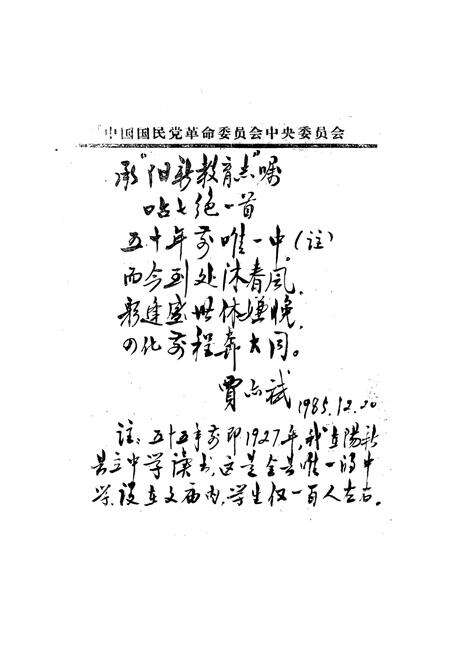 中国国民党革命委员会中央委员会
承“阳新教育志”嘱
咕七绝一首
五十年前唯一中(注)
而今到处沐春风，
躬逢盛世休嫌晚，
四化前程奔大同。
贾亦斌 1985.12.20
注：五十五年前即1927年，我在陽新
县立中学读书，这是全县唯一的中
学，设在文庙内，学生仅一百人左右。